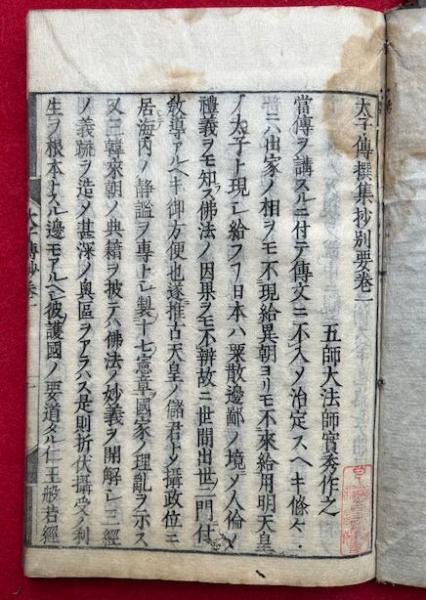 太子傳撰集抄別要卷一
五師大法師實秀作之
當傳ヲ講スルニ付テ傳文ニ不入メ治定スヘキ條々
ニ出家ノ相ヲモ不現給異朝ヨリモ不來給用明天皇
ノ太子ト現レ給フフ日本ハ粟散邊鄙ノ境メ人倫ノ
禮義ヲモ知ス佛法ノ因果ヲモ不辨故ニ世間出世ノ二門付
教導アルヘキ御方便也遂推古天皇ノ儲君トメ攝政位ニ
居海内ノ靜謐ヲ專トレ製十七憲章國家ノ理亂ヲ示ス
又三韓來朝ノ典籍ヲ披テハ佛法ノ妙義ヲ開解レ三經
ノ義疏ヲ造メ甚深ノ奥區ヲアラハス是則折伏攝受ノ利
生ヲ根本トスル邊モアルヘレ彼護國ノ要道タル仁王般若經
太子傳抄卷一